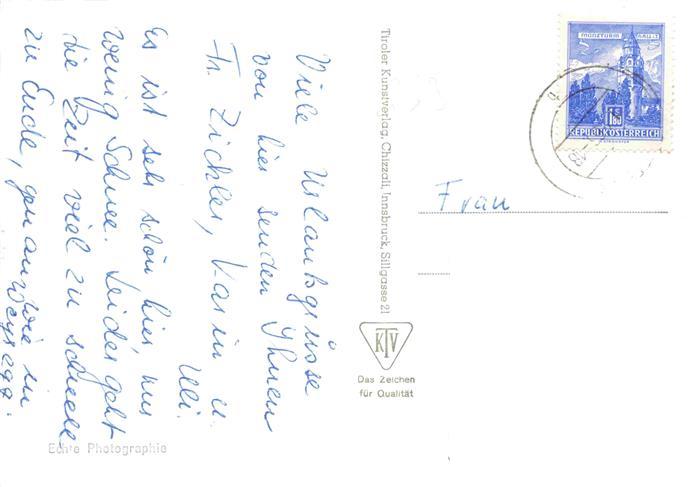 Viele Urlaubsgrüsse
von hier senden Ihnen
Fr. Zickler, Karin u.
Uli.
Es ist sehr schön hier nur
wenig Schnee. Leider geht
die Zeit viel zu schnell
zu Ende, genau wie in
Weyregg.
Tiroler Kunstverlag, Chizzali, Innsbruck, Sillgasse 21
KTV
Das Zeichen
für Qualität
Echte Photographie
MÜNZTURM HALL i. T.
S 1.80
REPUBLIK ÖSTERREICH
Frau